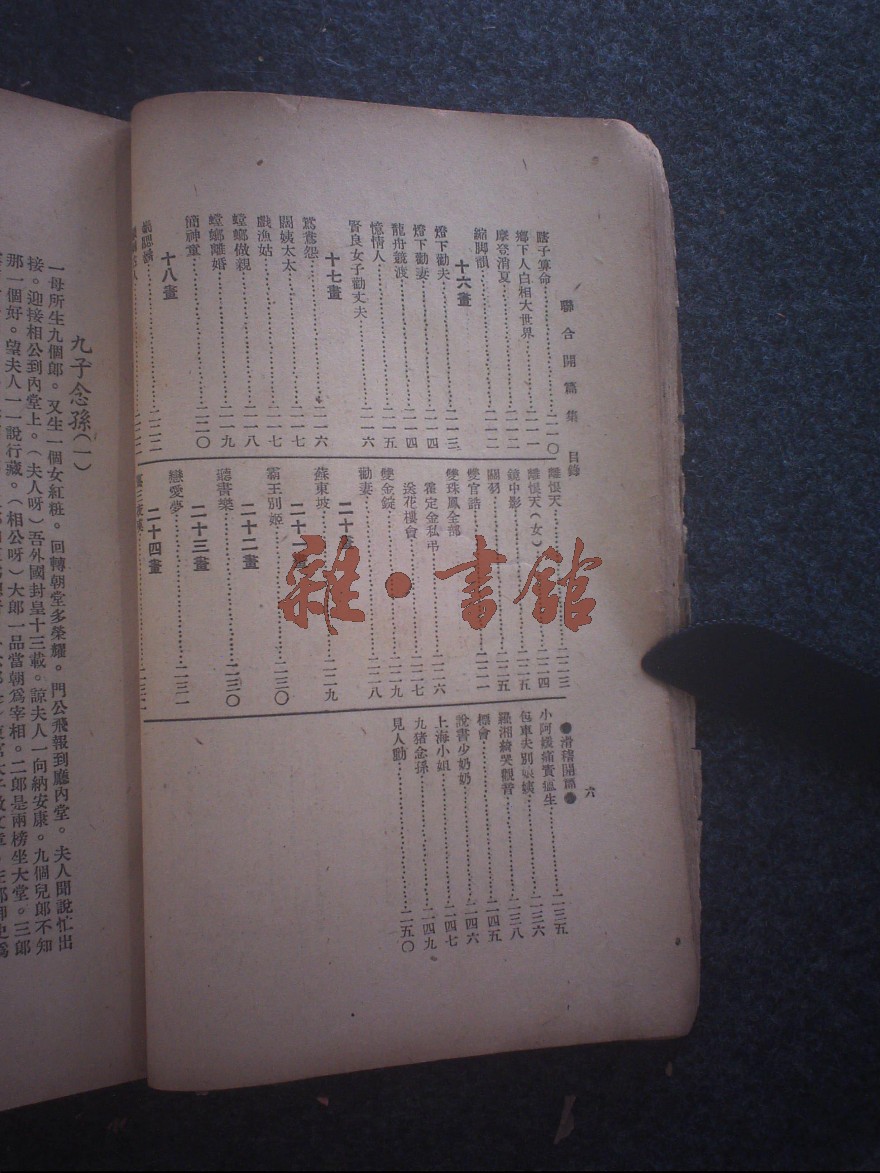 聯合開篇集 目錄
瞎子算命……二一〇
鄉下人白相大世界……二一一
摩登消夏……二一二
縮脚韻……二一二
十六畫
燈下勸夫……二一三
燈下勸妻……二一四
龍舟競渡……二一四
憶情人……二一五
賢良女子勸丈夫……二一六
十七畫
鴛鴦怨……二一六
闊姨太太……二一七
戲漁姑……二一七
螳螂做親……二一八
螳螂離婚……二一九
簡神童……二二〇
十八畫
離恨天……二二三
離恨天（女）……二二四
鏡中影……二二五
關羽……二二五
雙官誥……二二一
雙珠鳳全部
霍定金私弔……二二六
送花樓會……二二七
雙金錠……二二九
勸妻……二二八
二十畫
蘇東坡……二二九
二十一畫
霸王別姬……二三〇
二十二畫
聽書樂……二三〇
二十三畫
戀愛夢……二三一
二十四畫
●滑稽開篇●
小阿媛痛責瘟生……二三五
包車夫別娘姨……二三六
羅湘綺哭觀音……二三八
標會……二四五
說書少奶奶……二四六
上海小姐……二四七
九猪念孫……二四九
見人動……二五〇
六
雜·書館
九子念孫（一）
一母所生九個郎。又生一個女紅粧。回轉朝堂多榮耀。門公飛報到廳內堂。夫人聞說忙出
接。迎接相公到內堂上。（夫人呀）吾外國封皇十三載。諒夫人一向納安康。九個兒郎不知
那一個好。望夫人一一說行藏。（相公呀）大郎一品當朝爲宰相。二郎是兩榜坐大堂。三郎